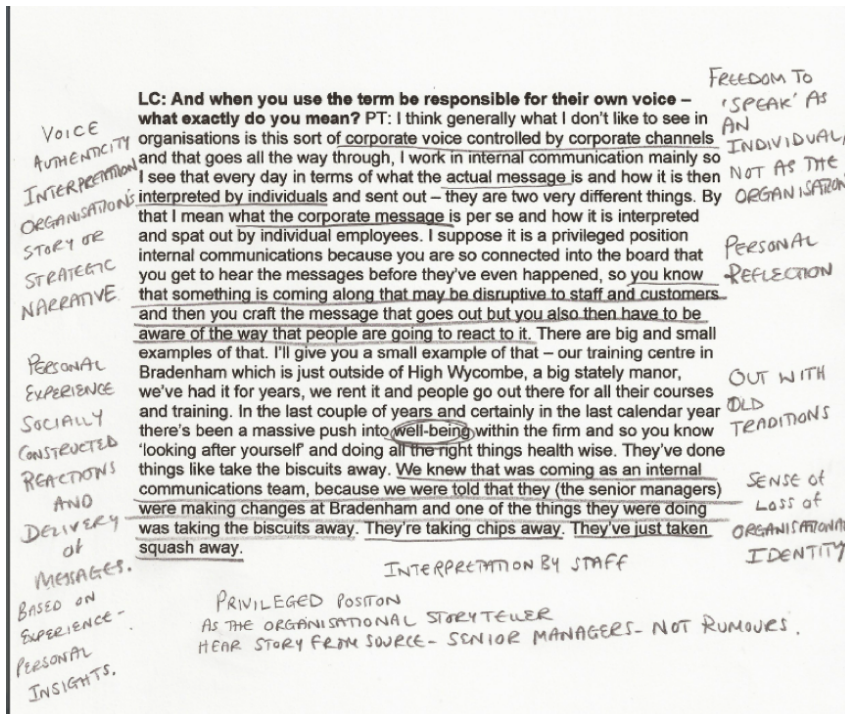 LC: And when you use the term be responsible for their own voice –
what exactly do you mean? PT: I think generally what I don't like to see in
organisations is this sort of corporate voice controlled by corporate channels
and that goes all the way through, I work in internal communication mainly so
I see that every day in terms of what the actual message is and how it is then
interpreted by individuals and sent out – they are two very different things. By
that I mean what the corporate message is per se and how it is interpreted
and spat out by individual employees. I suppose it is a privileged position
internal communications because you are so connected into the board that
you get to hear the messages before they've even happened, so you know
that something is coming along that may be disruptive to staff and customers
and then you craft the message that goes out but you also then have to be
aware of the way that people are going to react to it. There are big and small
examples of that. I'll give you a small example of that – our training centre in
Bradenham which is just outside of High Wycombe, a big stately manor,
we've had it for years, we rent it and people go out there for all their courses
and training. In the last couple of years and certainly in the last calendar year
there's been a massive push into well-being within the firm and so you know
'looking after yourself' and doing all the right things health wise. They've done
things like take the biscuits away. We knew that was coming as an internal
communications team, because we were told that they (the senior managers)
were making changes at Bradenham and one of the things they were doing
was taking the biscuits away. They're taking chips away. They've just taken
squash away.
VOICE
AUTHENTICITY
INTERPRETATION
ORGANISATION'S
STORY OR
STRATEGIC
NARRATIVE
PERSONAL
EXPERIENCE
SOCIALLY
CONSTRUCTED
REACTIONS
AND
DELIVERY
of
MESSAGES.
BASED ON
EXPERIENCE –
PERSONAL
INSIGHTS.
FREEDOM TO
'SPEAK' AS
AN
INDIVIDUAL,
NOT AS THE
ORGANISATION
PERSONAL
REFLECTION
OUT WITH
OLD
TRADITIONS
SENSE of
LOSS of
ORGANISATIONAL
IDENTITY
INTERPRETATION BY STAFF
PRIVILEGED POSITON
AS THE ORGANISATIONAL STORYTELLER
HEAR STORY FROM SOURCE – SENIOR MANAGERS – NOT RUMOURS.